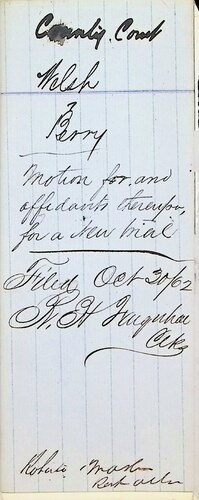 County Court
Welsh
Berry
Motion for and
affidavits thereupon,
for a New trial
Filed Oct 30/62
Clk
Roberts